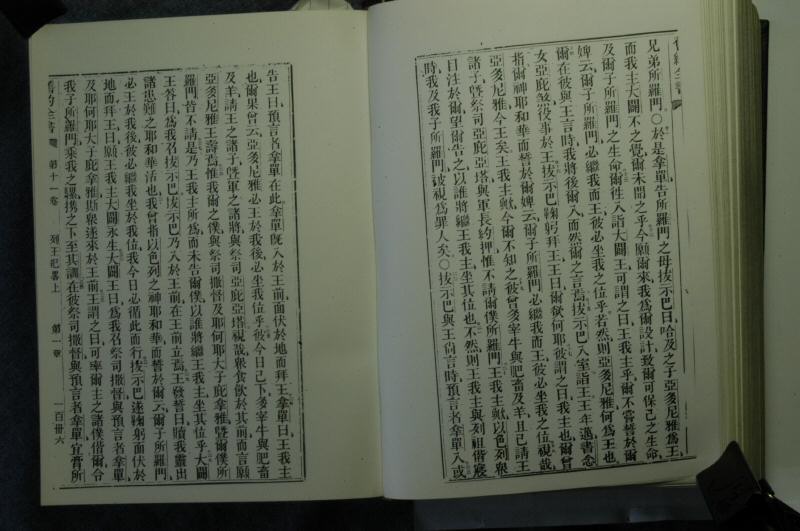 兄弟所羅門○於是拿單告所羅門之母拔示巴曰哈及之子亞多尼雅為王
而我主大闢不之覺爾未聞之乎今願爾來我為爾設計致爾可保己之生命
及爾子所羅門之生命爾徃入詣大闢王可謂之曰王我主乎爾不嘗誓於爾
婢云爾子所羅門必繼我而王彼必坐我之位乎若然則亞多尼雅何為王也
爾在彼與王言時我將後爾入而然爾之言焉拔示巴入室詣王王年邁書念
女亞庇煞役事於王拔示巴鞠躬拜王王曰爾欲何耶彼謂之曰我主也爾曾
指爾神耶和華而誓於爾婢云爾子所羅門必繼我而王彼必坐我之位視哉
亞多尼雅今王矣王我主歟今爾不知之彼曾多宰牛與肥畜及羊且已請王
諸子曁祭司亞庇亞塔與軍長約押惟不請爾僕所羅門王我主歟以色列衆
目注於爾望爾告之以誰將繼王我主坐其位也不然則王我主與列祖偕寢
時我及我子所羅門被視為罪人矣○拔示巴與王尚言時預言者拿單入或
告王曰預言者拿單在此拿單旣入於王前面伏於地而拜王拿單曰王我主
也爾果曾云亞多尼雅必王於我後必坐我位乎彼今日已下多宰牛與肥畜
及羊請王之諸子曁軍之諸將與祭司亞庇亞塔視哉衆食飲於其前而言願
亞多尼雅王壽焉惟我爾之僕與祭司撒督及耶何耶大子庇拿雅曁爾僕所
羅門皆不請是乃王我主所為而未告爾僕以誰將繼王我主坐其位乎大闢
王答曰為我召拔示巴拔示巴乃入於王前在王前立焉王發誓曰贖我靈出
諸患難之耶和華活也我曾指以色列之神耶和華而誓於爾云爾子所羅門
必王於我後彼必繼我坐於我位我今日必循此而行拔示巴遂鞠躬面伏於
地而拜王曰願王我主大闢永生大闢王曰為我召祭司撒督與預言者拿單
及耶何耶大子庇拿雅斯衆遂來於王前王謂之曰可率爾主之諸僕偕爾令
我子所羅門乘我之騾携之下至其訓在彼祭司撒督與預言者拿單宜膏所
舊約全書 第十一卷 列王紀畧上 第一章 一百卅六